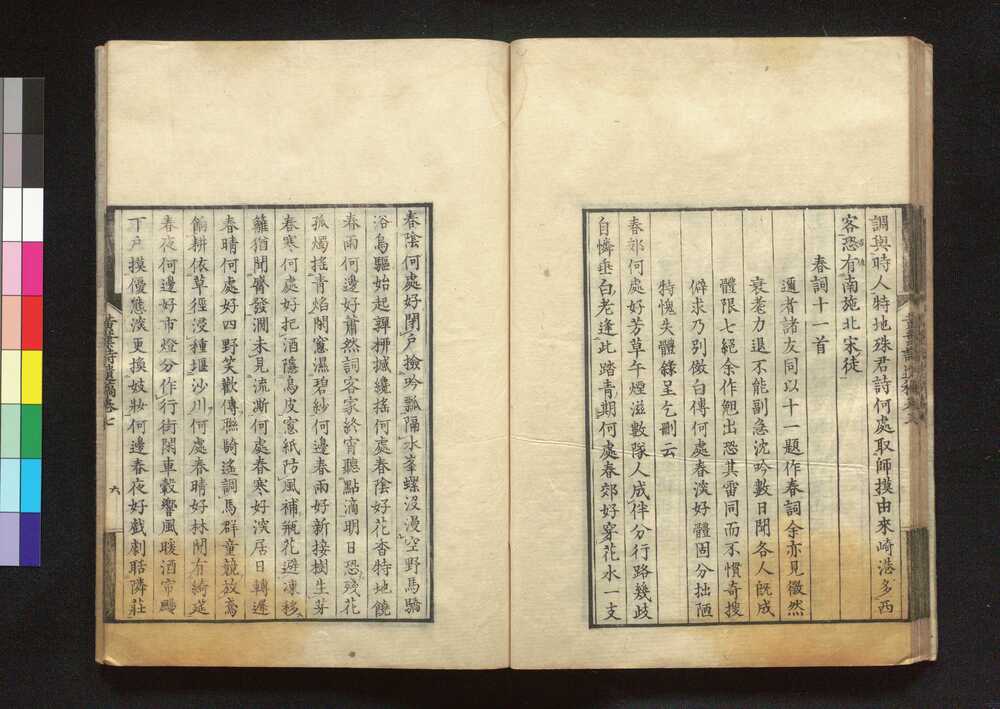 調與時人特地殊君詩何處取師摸由來崎港多西
客恐有南施北宋徒
春詞十一首
邇者諸友同以十一題作春詞余亦見徵然
衰耄力退不能副急沈吟數日聞各人既成
體限七絕余作勉出恐其雷同而不慣奇搜
僻求乃別倣白傳何處春淡好體固分拙陋
特愧失體錄呈乞刪云
春郊何處好芳草午煙滋數隊人成伴分行路幾歧
自憐垂白老逢此踏青期何處春郊好穿花水一支
春陰何處好閉戶撿吟瓢隔水峯螺沒漫空野馬驕
浴鳥驅始起譚柹撼纔搖何處春陰好花香特地饒
春雨何邊好蕭然詞客家終宵聽點滴明日恐殘花
孤燭搖青焰閑窻濕碧紗何邊春雨好新接樹生芽
春寒何處好把酒隱烏皮窻紙防風補瓶花避凍移
籬猶聞臍發澗未見流澌何處春寒好淡居日轉遲
春晴何處好四野笑歡傳聮騎遙調馬群童競放鳶
餉耕依草徑浸種堰沙川何處春晴好林間有綺筵
春夜何邊好市燈分作行街閑車轂響風暖酒帘颺
丁戶摸優態淡更換妓妝何邊春夜好戲劇聒隣莊
黃葉詩遺稿卷七
六